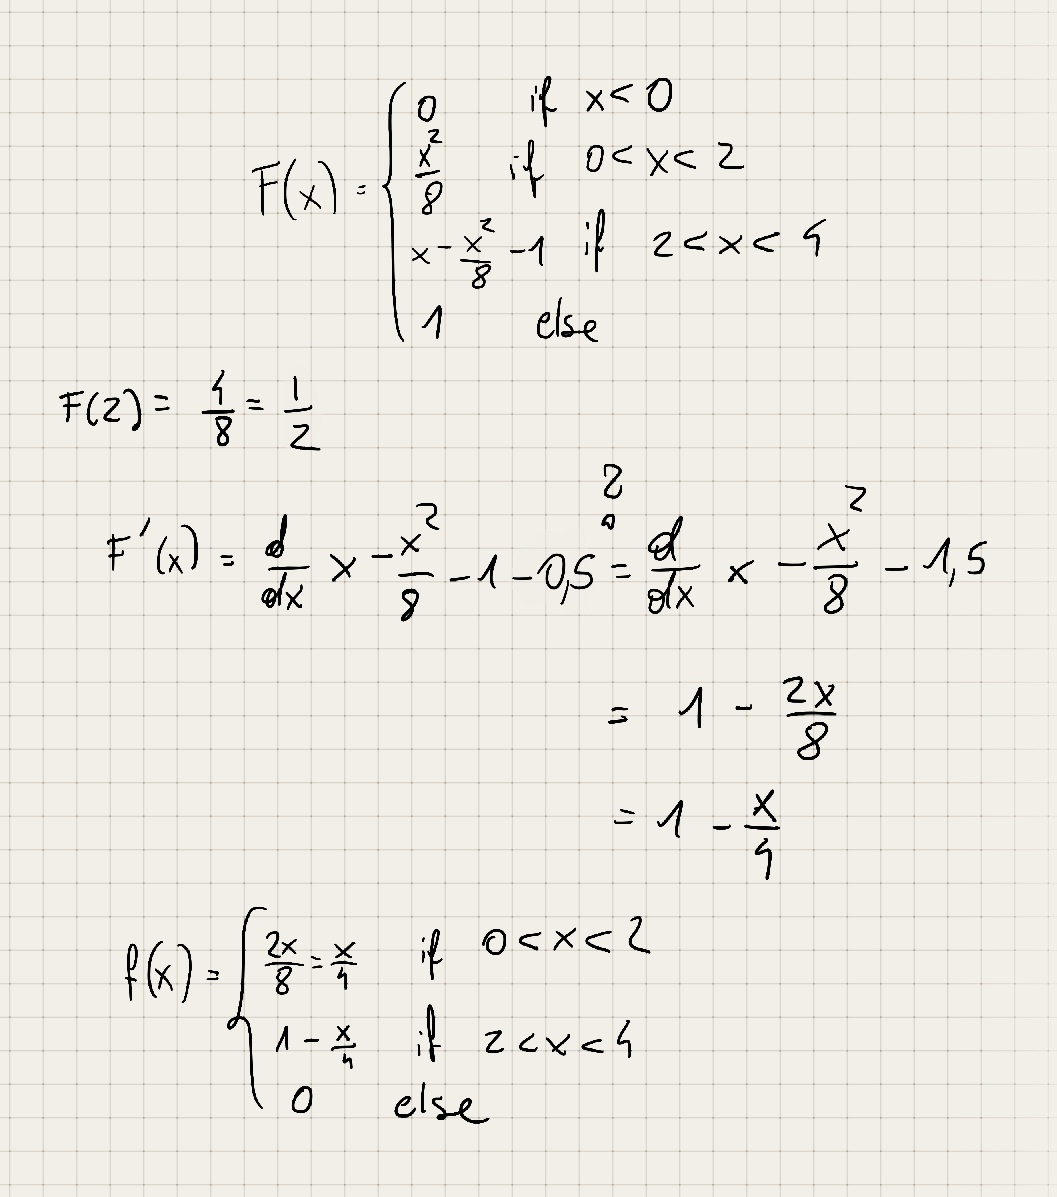 F(x) = { 0 if x < 0
x²/8 if 0 < x < 2
x - x²/8 - 1 if 2 < x < 4
1 else
F(2) = 4/8 = 1/2
?
F'(x) = d/dx x - x²/8 - 1 - 0,5 = d/dx x - x²/8 - 1,5
= 1 - 2x/8
= 1 - x/4
f(x) = { 2x/8 = x/4 if 0 < x < 2
1 - x/4 if 2 < x < 4
0 else